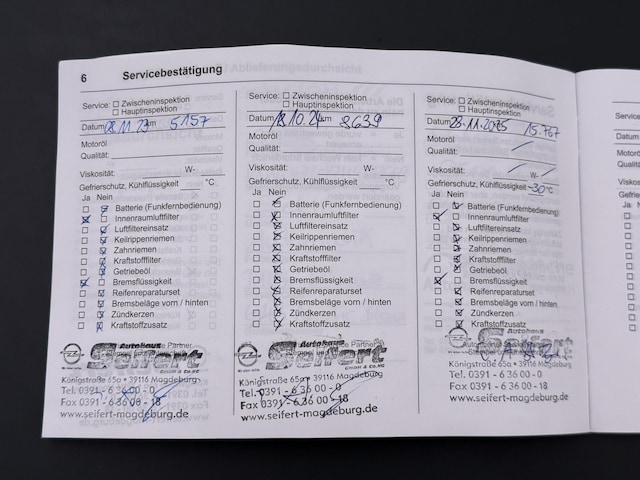 6 Servicebestätigung
Service: Zwischeninspektion
Hauptinspektion
Datum 08.11.23 km 5157
Motoröl
Qualität:
Viskosität: W-
Gefrierschutz, Kühlflüssigkeit °C
Ja Nein
Batterie (Funkfernbedienung)
Innenraumluftfilter
Luftfiltereinsatz
Keilrippenriemen
Zahnriemen
Kraftstofffilter
Getriebeöl
Bremsflüssigkeit
Reifenreparaturset
Bremsbeläge vorn / hinten
Zündkerzen
Kraftstoffzusatz
Partner
Autohaus
Seifert
GmbH & Co.KG
Königstraße 65a • 39116 Magdeburg
Tel. 0391 - 6 36 00 - 0
Fax 0391 - 6 36 00 - 18
www.seifert-magdeburg.de
Service: Zwischeninspektion
Hauptinspektion
Datum 18.10.24 km 8639
Motoröl
Qualität:
Viskosität: W-
Gefrierschutz, Kühlflüssigkeit °C
Ja Nein
Batterie (Funkfernbedienung)
Innenraumluftfilter
Luftfiltereinsatz
Keilrippenriemen
Zahnriemen
Kraftstofffilter
Getriebeöl
Bremsflüssigkeit
Reifenreparaturset
Bremsbeläge vorn / hinten
Zündkerzen
Kraftstoffzusatz
Partner
Autohaus
Seifert
GmbH & Co.KG
Königstraße 65a • 39116 Magdeburg
Tel. 0391 - 6 36 00 - 0
Fax 0391 - 6 36 00 - 18
www.seifert-magdeburg.de
Service: Zwischeninspektion
Hauptinspektion
Datum 28.11.2025 15.767
Motoröl
Qualität:
Viskosität: W-
Gefrierschutz, Kühlflüssigkeit -30 °C
Ja Nein
Batterie (Funkfernbedienung)
Innenraumluftfilter
Luftfiltereinsatz
Keilrippenriemen
Zahnriemen
Kraftstofffilter
Getriebeöl
Bremsflüssigkeit
Reifenreparaturset
Bremsbeläge vorn / hinten
Zündkerzen
Kraftstoffzusatz
Autohaus
Seifert
Königstraße 65a • 39116 Magdeburg
Tel. 0391 - 6 36 00 - 0
Fax 0391 - 6 36 00 - 18
www.seifert-magdeburg.de